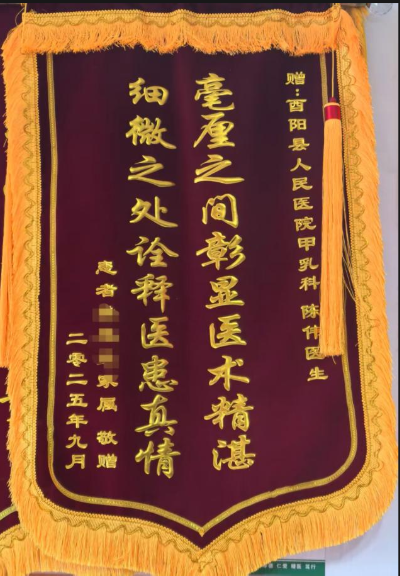 赠：酉阳县人民医院甲乳科 陈伟医生
毫厘之间彰显医术精湛
细微之处诠释医患真情
患者 家属 敬赠
二零二五年九月